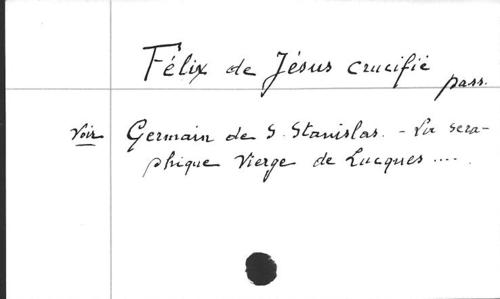 Félix de Jésus crucifié
pass.
Voir Germain de S. Stanislas. - La sera-
phique Vierge de Lucques ....